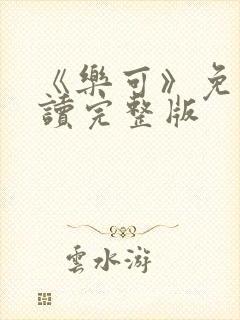 《樂可》免
讀完整版
雲水游